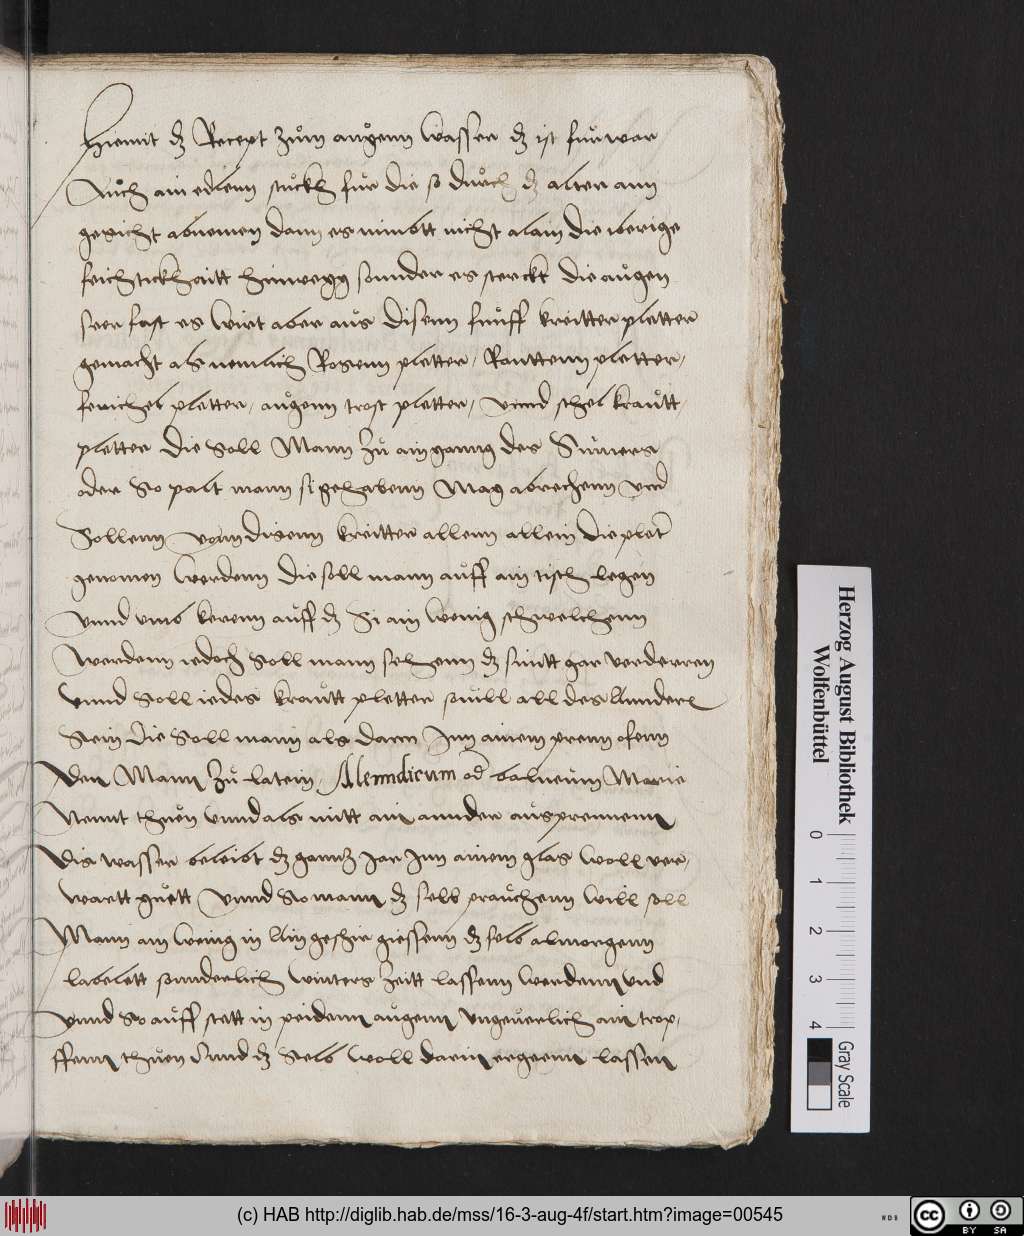 Hiemit dz Recept zům augenn wasser dz ist fürwar
Auch ain edlenn stuckh für die so durch dz alter am
gesicht abnemen dann es nimbtt nicht alain die iberige
feichtickhaitt hinwegg sonnder es sterckt die augen
seer fast es wirt aber aus disenn funff kreitter pletter
gemacht als nemlich Rosenn pletter, Rauttenn pletter,
fenichel pletter, augenn trost pletter, vnnd schel krautt
pletter die soll Mann zu aingang des Sumers
oder so palt mann si gehabenn Mag abrechenn vnd
Sollenn vonn disenn kreitter allenn allein die plet
genomen werdenn die soll mann auff ain tisch legen
vnnd vmb kerenn auff dz si ain wenig schwelchenn
werdenn iedoch soll mann sehenn dz si nitt gar verderren
vnnd soll iedes krautt pletter souill all des Annderl
Sein die soll mann als dann Inn ainem prenn ofenn
den Mann zu latein, od balneum Marie
Nennt thuen vnnd als mitt ain annder ausprennenn
dis wasser beleibt dz gantz Jar Inn ainem glas woll ver,
wartt guett vnnd so mann dz selb prauchenn will soll
Mann ain wenig in Ain geschir giessenn dz selb almorgenn
labelett sonnderlich winters Zeitt lassenn werdenn vnd
vnnd so auff stett in peidenn augenn vngeuerlich ain trop,
ffenn thuen Vnnd dz selb woll darein ergeenn lassen
Herzog August Bibliothek
Wolfenbüttel
0 1 2 3 4
Gray Scale
(c) HAB http://diglib.hab.de/mss/16-3-aug-4f/start.htm?image=00545
WDB
cc BY SA